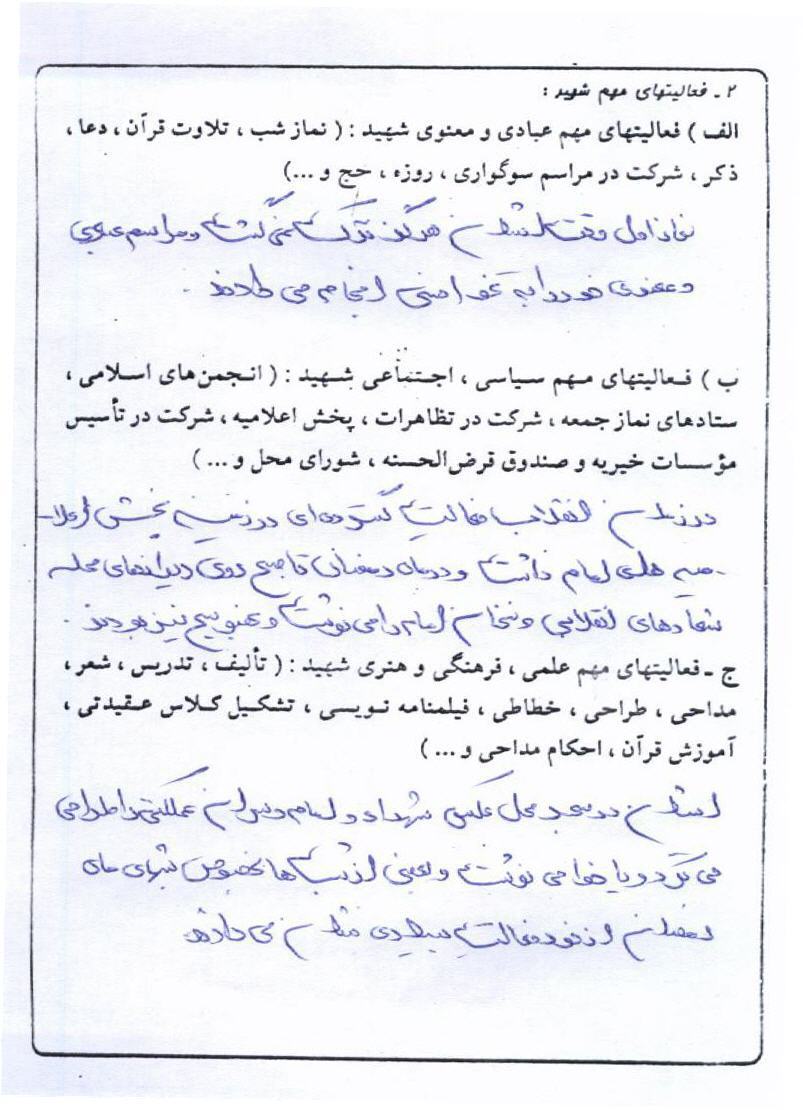 ۲ ـ فعالیتهای مهم شهید :
الف ) فعالیتهای مهم عبادی و معنوی شهید : ( نماز شب ، تلاوت قرآن ، دعا ،
ذکر ، شرکت در مراسم سوگواری ، روزه ، حج و ...)
نماز اول وقت ایشان هرگز ترک نمی گشت و مراسم عبادی
و معنوی خود را به نحو احسنی انجام می دادند .
ب ) فعالیتهای مهم سیاسی ، اجتماعی شهید : ( انجمن‌های اسلامی ،
ستادهای نماز جمعه ، شرکت در تظاهرات ، پخش اعلامیه ، شرکت در تأسیس
مؤسسات خیریه و صندوق قرض‌الحسنه ، شورای محل و ... )
در زمان انقلاب فعالیت گسترده‌ای در زمینه پخش اعلا-
-میه های امام داشت و در ماه رمضان تا صبح روی دیوارهای محله
شعارهای انقلابی و سخنان امام را می نوشت و عضو بسیج نیز بودند .
ج ـ فعالیتهای مهم علمی ، فرهنگی و هنری شهید : ( تألیف ، تدریس ، شعر ،
مداحی ، طراحی ، خطاطی ، فیلمنامه نویسی ، تشکیل کلاس عقیدتی ،
آموزش قرآن ، احکام مداحی و ... )
ایشان در مسجد محل عکس شهداء و امام و سران مملکتی را طراحی
می کرد و یا خط می نوشت و بعضی از شب ها بخصوص شبهای ماه
رمضان از خود فعالیت بسیاری نشان می دادند